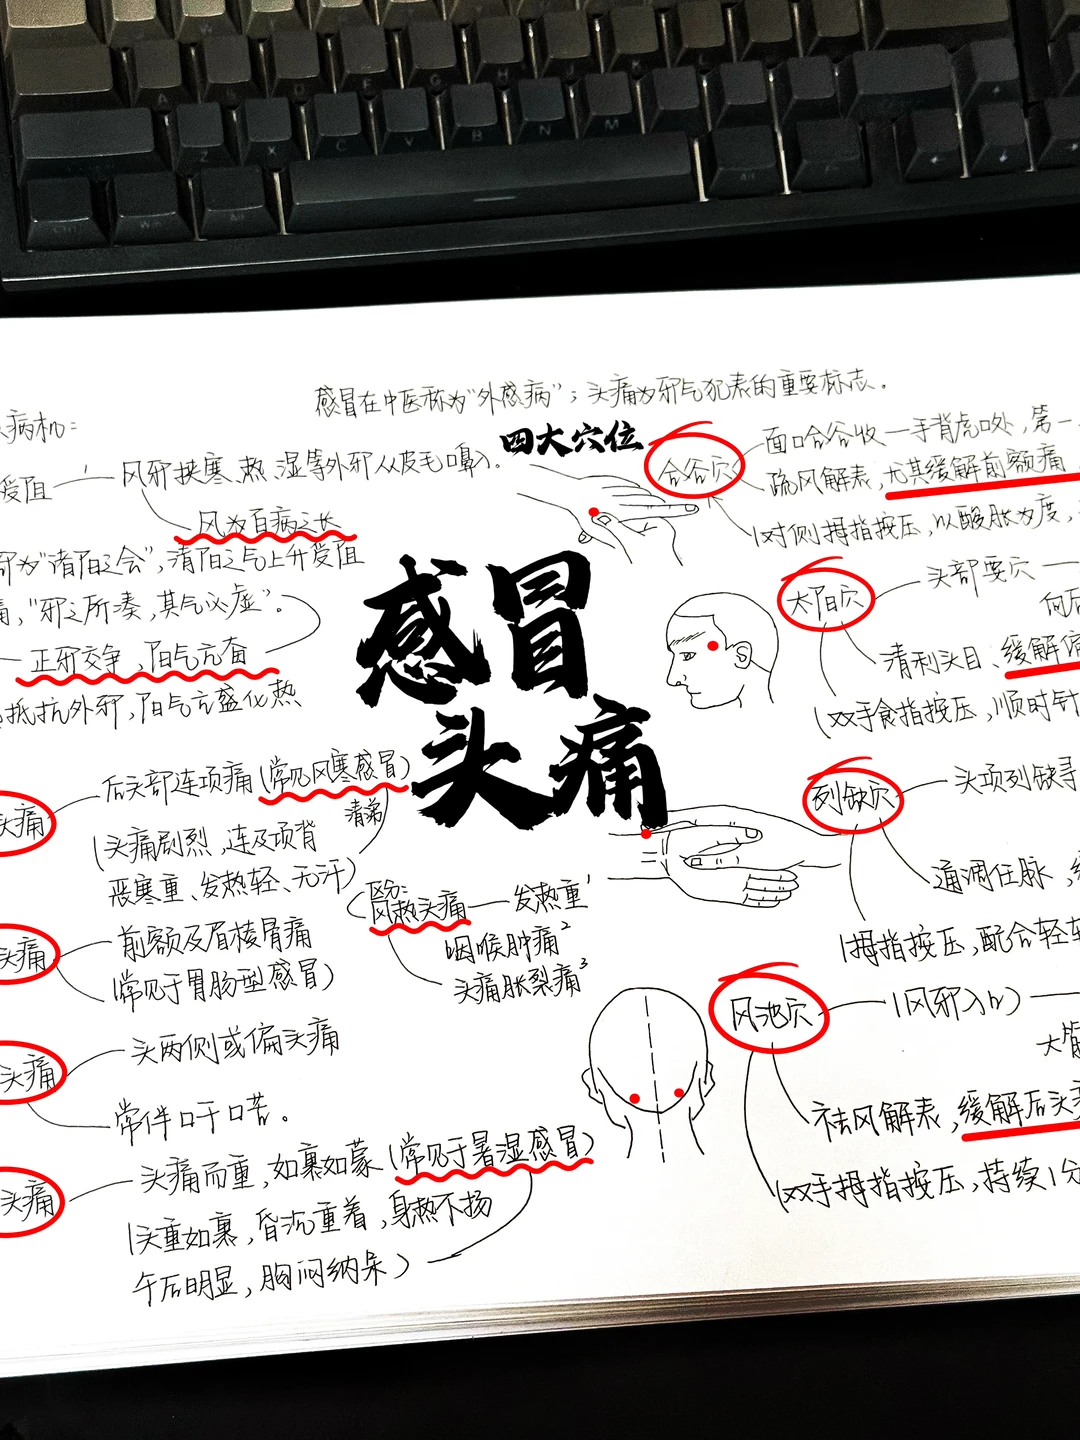 感冒在中医称为“外感病”；头痛为邪气犯表的重要标志。
病机：
受阻
风邪挟寒、热、湿等外邪从皮毛口鼻入。
风为百病之长
为“诸阳之会”，清阳之气上升受阻
，“邪之所凑，其气必虚”。
正邪交争，阳气亢奋
抵抗外邪，阳气亢盛化热
四大穴位
感冒
头痛
合谷穴
面口合谷收
手背虎口处，第一
疏风解表，尤其缓解前额痛
对侧拇指按压，以酸胀为度，
太阳穴
头部要穴
向后
清利头目、缓解偏
双手食指按压，顺时针
列缺穴
头项列缺寻
通调任脉，
拇指按压，配合轻轻
风池穴
（风邪入口）
祛风解表，缓解后头
双手拇指按压，持续1分
头痛
后头部连项痛（常见风寒感冒）
（头痛剧烈，连及项背
恶寒重、发热轻、无汗）
清涕
区分：
风热头痛
发热重¹
咽喉肿痛²
头痛胀裂痛³
头痛
前额及眉棱骨痛
（常见于胃肠型感冒）
头痛
头两侧或偏头痛
常伴口干口苦。
头痛
头痛而重，如裹如蒙（常见于暑湿感冒）
（头重如裹，昏沉重着，身热不扬
午后明显，胸闷纳呆）
A
S
D
F
G
H
J
K
L
Z
X
C
V
B
N
M
Ctrl
Win
Alt